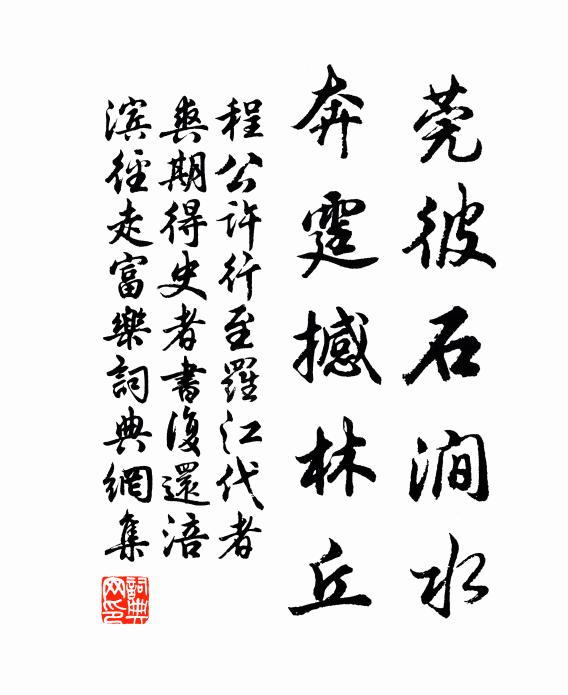 莞彼石澗水
奔霆撼林丘
程公許行至羅江代者
爽期得史者書復還涪
滨徑走富樂詞典網集
詞典
网印